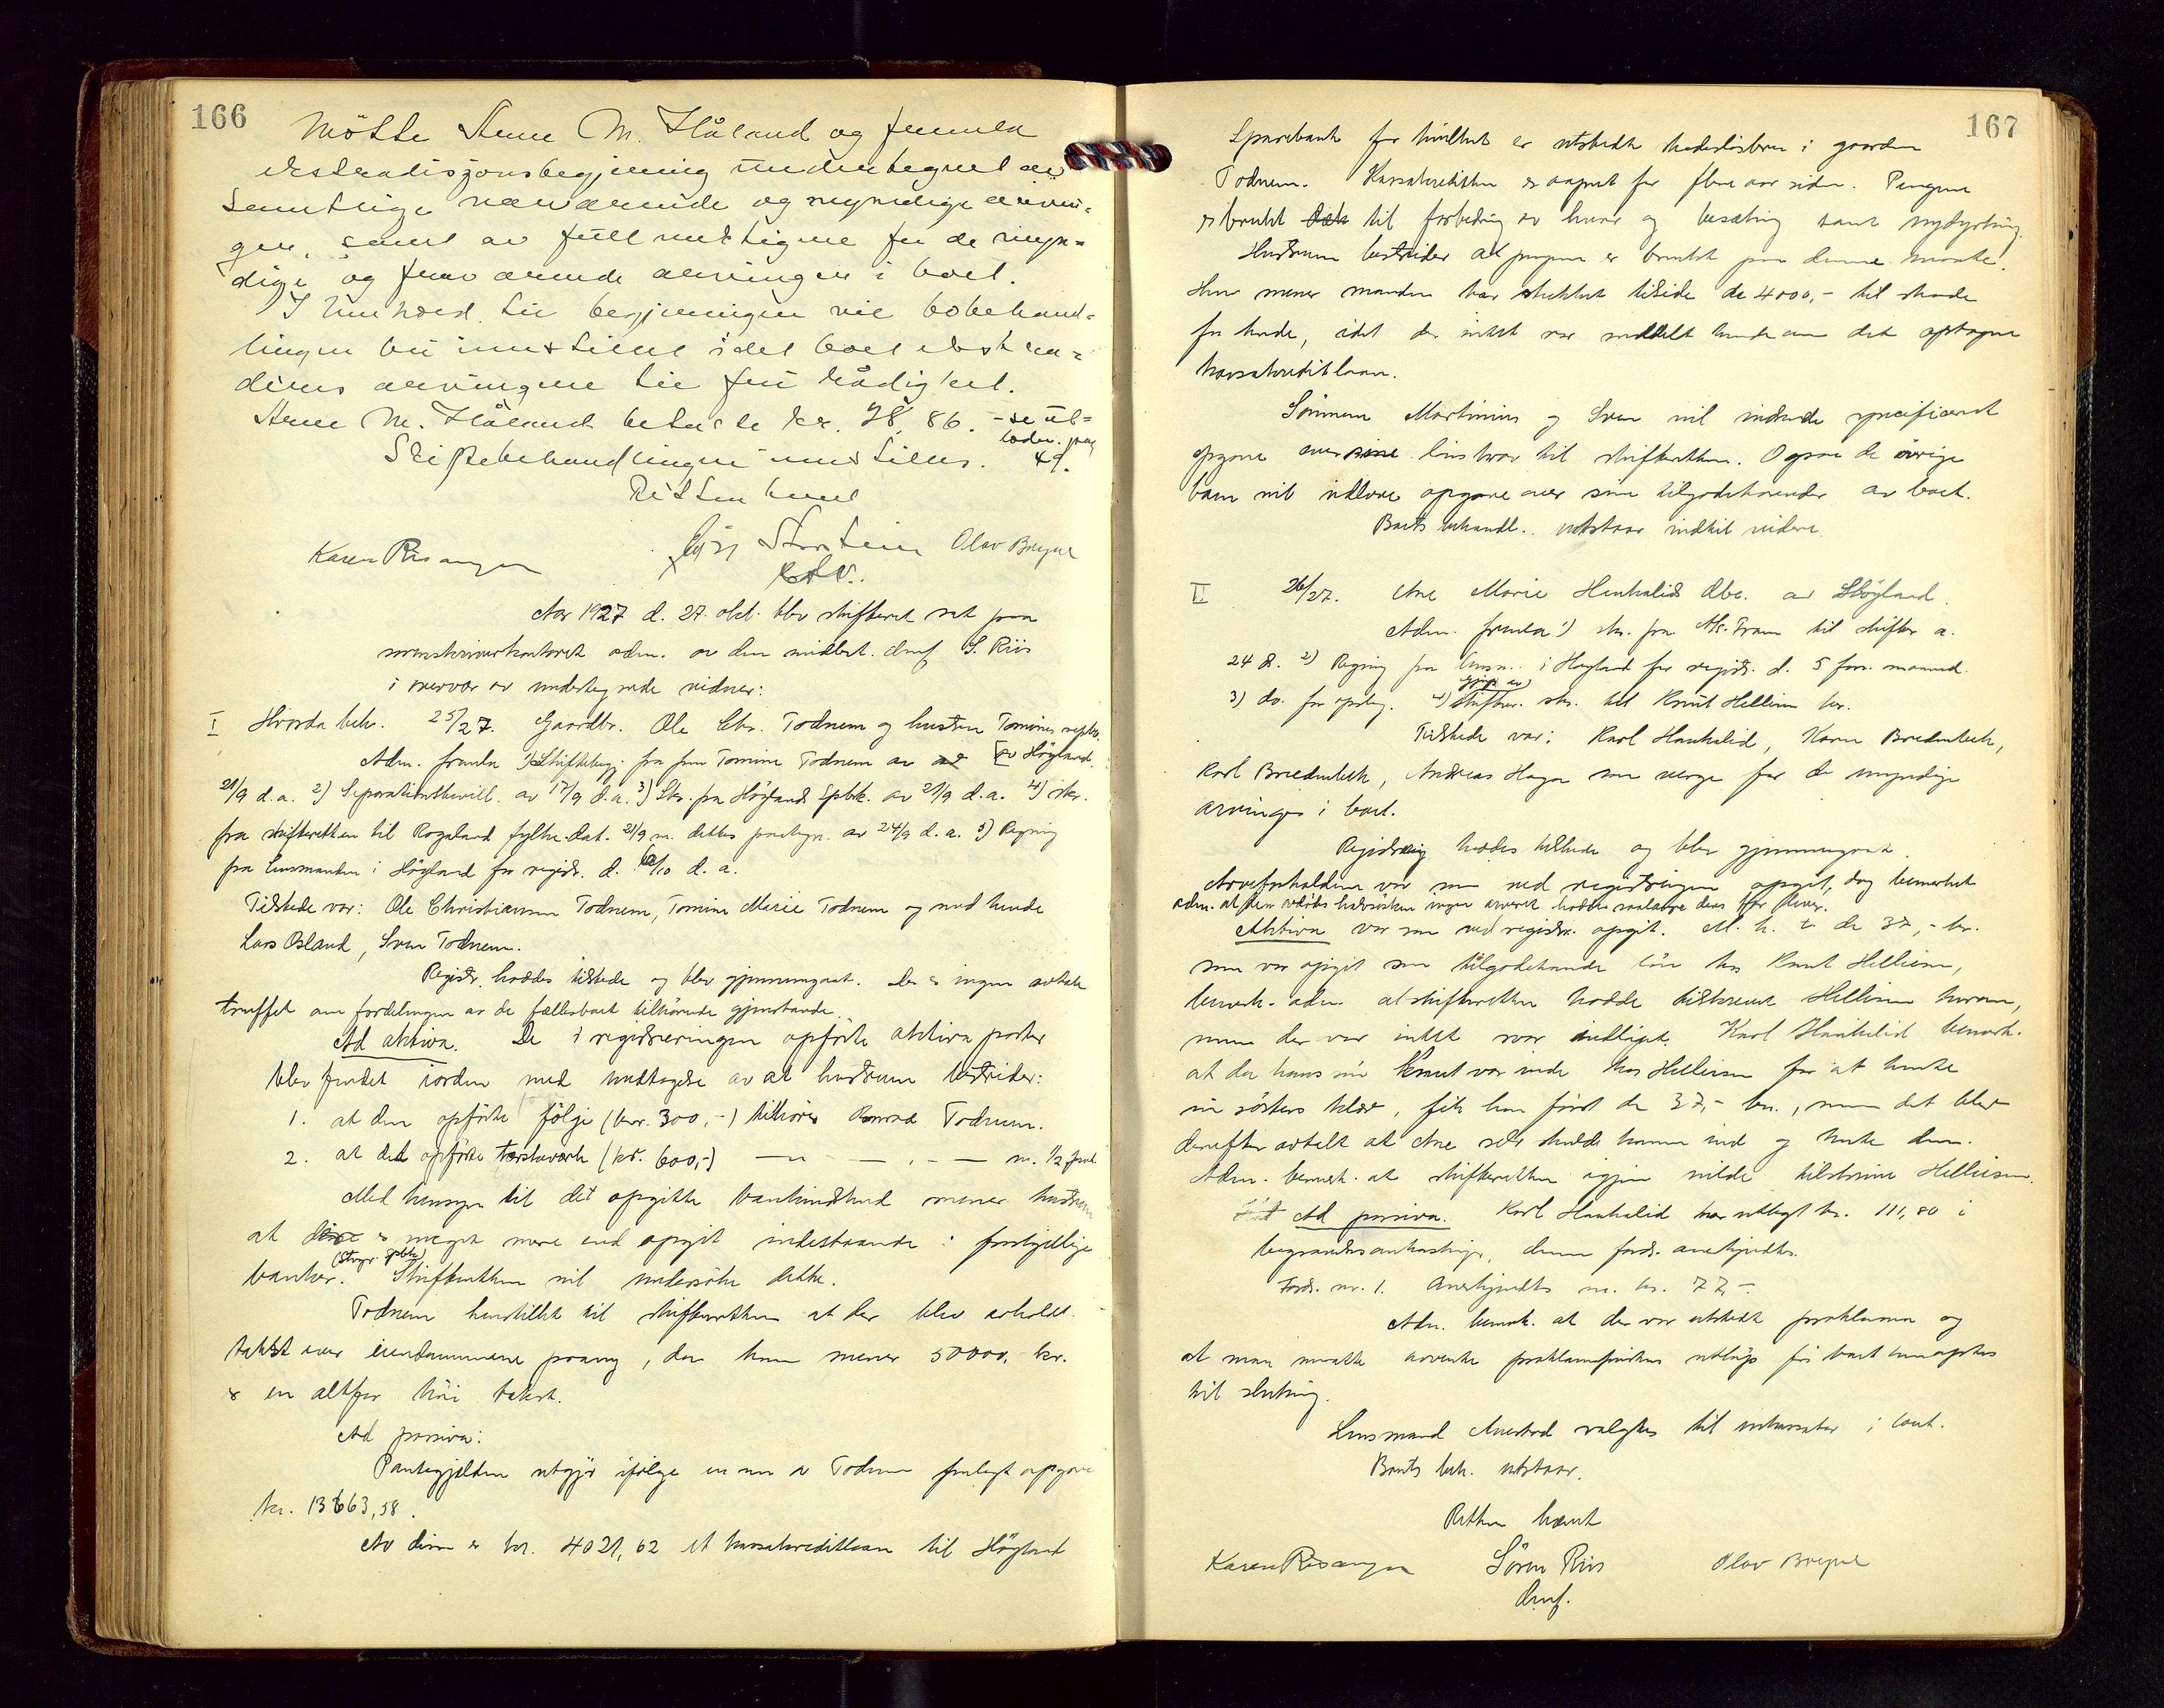 166
Møtte Arne M. Håland og fremla
ekstradisjonsbegjering undertegnet av
samtlige nærværende og myndige arvin-
ger, samt av fullmektigene for de umyn-
dige og fraværende arvinger i boet.
I henhold til begjeringen vil bobehand-
lingen bli innstillet idet boet ekstra-
deres arvingene til fri rådighet.
Arne M. Håland betalte kr. 78,86. - se ut-
loddn. pag
Skiftebehandlingen innstilles. 49.
Retten hevet
Karen Risanger Storstein Olav Bryne
Aar 1927 d. 27. okt. blev skifteret sat paa
sorenskriverkontoret adm. av den midlert. dmf S. Riis
i overvær av undertegnede vidner:
I Hvorda beh. 25/27. Gaardbr. Ole Chr. Todnem og hustru Tomines
Adm. fremla 1) Skiftebegj. fra fru Tomine Todnem av [av Høyland.
21/9 d.a. 2) Separationsbevill. av 17/9 d.a. 3) Skr. fra Høyland Spbk. av 21/9 d.a. 4) skr.
fra skifteretten til Rogaland fylke dat. 21/9 m. dettes paategn. av 24/9 d.a. 5) Regning
fra lensmanden i Høyland for registr. d. /10 d.a.
Tilstede var: Ole Christiansen Todnem, Tomine Marie Todnem og med hende
Lars Osland, Sven Todnem.
Registr. hadde tilstede og blev gjennemgaat. Der er ingen avtale
truffet om fordelingen av de fællesboet tilhørende gjenstande.
Ad aktiva. De i registreringen opførte aktiva poster
blev fundet iorden med undtagelse av at hustruen bestrider:
1. at den opførte følge (kr. 300,-) tilhører Konrad Todnem.
2. at det opførte tærskeverk (kr. 600,-) —„— — . - — m. 1/2 part.
Med hensyn til det opgitte bankindskud mener hustruen
at der er meget mere end opgit indestaaende i forskjellige
banker. Skifteretten vil undersøke dette.
Todnem henstillet til skifteretten at der blev avholdt
takst over eiendommene paany, da han mener 50000,- kr.
er en altfor høi takst.
Ad passiva:
Pantegjælden utgjør ifølge en av Todnem fremlagt opgave
kr. 13663,58.
Av disse er kr. 4021,62 et kassakreditlaan til Høyland
167
Sparebank for hvilket er utstedt skadesløsbrev i gaarden
Todnem. Kassakreditten er aapnet for flere aar siden. Pengene
er brukt til forbedring av huser og besætning samt nydyrking.
Hustruen bestrider at pengene er brukt paa denne maate.
Hun mener manden har stukket tilside de 4000,- til skade
for hende, idet der intet var meddelt hende om det optagne
kassakreditlaan.
Sønnene Martinius og Sven vil indsende specificeret
opgave over sine lønskrav til skifteretten. Ogsaa de øvrige
barn vil indlevere opgave over sine tilgodehavender av boet.
Boets behandl. utstaar indtil videre.
II 26/27. Ane Marie Haukalids dbo. av Høyland.
Adm. fremla 1) skr. fra A/s. Fram til skifter. a.
24 ds. 2) Regning fra lensm. i Høyland for registr. d. 5 forr. maaned.
3) do. for opslag. 4) skifter. skr. til Knut Hellesen her.
Tilstede var: Karl Haukalid, Karen Bredenbeck,
Karl Bredenbeck, Andreas Haga som verge for de umyndige
arvinger i boet.
Registrering hadde tilstede og blev gjennemgaat.
Arveforholdene var som ved registreringen opgit, dog bemerket
Aktiva var som ved registr. opgit. M. h. t. de 37,- kr.
som var opgit som tilgodehavende løn hos Knut Hellesen,
bemerk. adm. at skifteretten hadde tilskrevet Hellesen herom,
men der var intet svar indløpet. Karl Haukalid bemerk.
at da hans søn Knut var inde hos Hellesen for at hente
sin søsters klær, fik han først de 37,- kr., men det blev
derefter avtalt at Ane selv skulde komme ind og hente dem.
Adm. bemerk. at skifteretten igjen vilde tilskrive Hellesen.
Ad passiva. Karl Haukalid har utlagt kr. 111,80 i
begravelsesomkostninger, denne ford. anerkjendtes.
Ford. nr. 1. Anerkjendtes m. kr. 77,-
Adm. bemerk. at der var utstedt proklama og
at man maatte avvente proklamafristens utløp før boet kunde optas
til slutning.
Lensmand Auestad valgtes til inkassator i boet.
Boets beh. utstaar.
Retten hævet
Karen Risanger Søren Riis Olav Bryne
dmf.